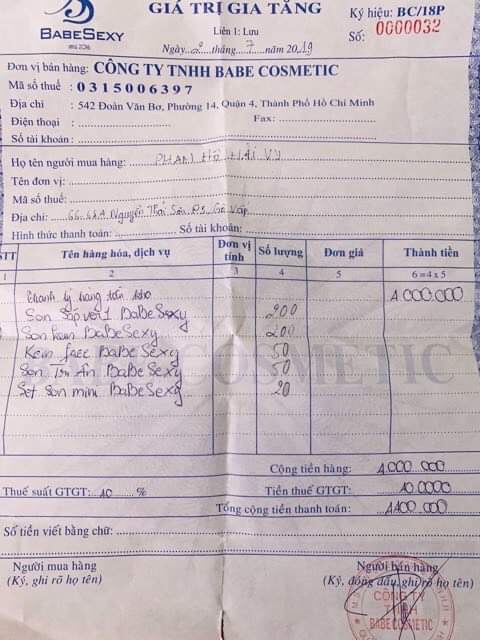 BABESEXY
GIÁ TRỊ GIA TĂNG
Liên 1: Lưu
Ngày 2 tháng 7 năm 2019
Ký hiệu: BC/18P
Số: 0000032
Đơn vị bán hàng: CÔNG TY TNHH BABE COSMETIC
Mã số thuế : 0315006397
Địa chỉ : 542 Đoàn Văn Bơ, Phường 14, Quận 4, Thành Phố Hồ Chí Minh
Điện thoại : Fax:
Số tài khoản:
Họ tên người mua hàng: PHẠM HỒ HẢI VY
Tên đơn vị:
Mã số thuế:
Địa chỉ: Nguyễn Thái Sơn P5 Gò Vấp
Hình thức thanh toán: Số tài khoản:
STT Tên hàng hóa, dịch vụ Đơn vị tính Số lượng Đơn giá Thành tiền
1 2 3 4 5 6 = 4 x 5
Thanh lý hàng tồn kho 1.000.000
Son Sáp ver1 BaBeSexy 200
Son kem BaBeSexy 200
Kem face BaBeSexy 50
Son BaBeSexy 50
Set Son mini BaBeSexy 20
BABE COSMETIC
Cộng tiền hàng: 1.000.000
Thuế suất GTGT: 10 % Tiền thuế GTGT: 10.0000
Tổng cộng tiền thanh toán: 1.100.000
Số tiền viết bằng chữ:
Người mua hàng Người bán hàng
(Ký, ghi rõ họ tên) (Ký, đóng dấu, ghi rõ họ tên)
CÔNG TY
TNHH
BABE COSMETIC